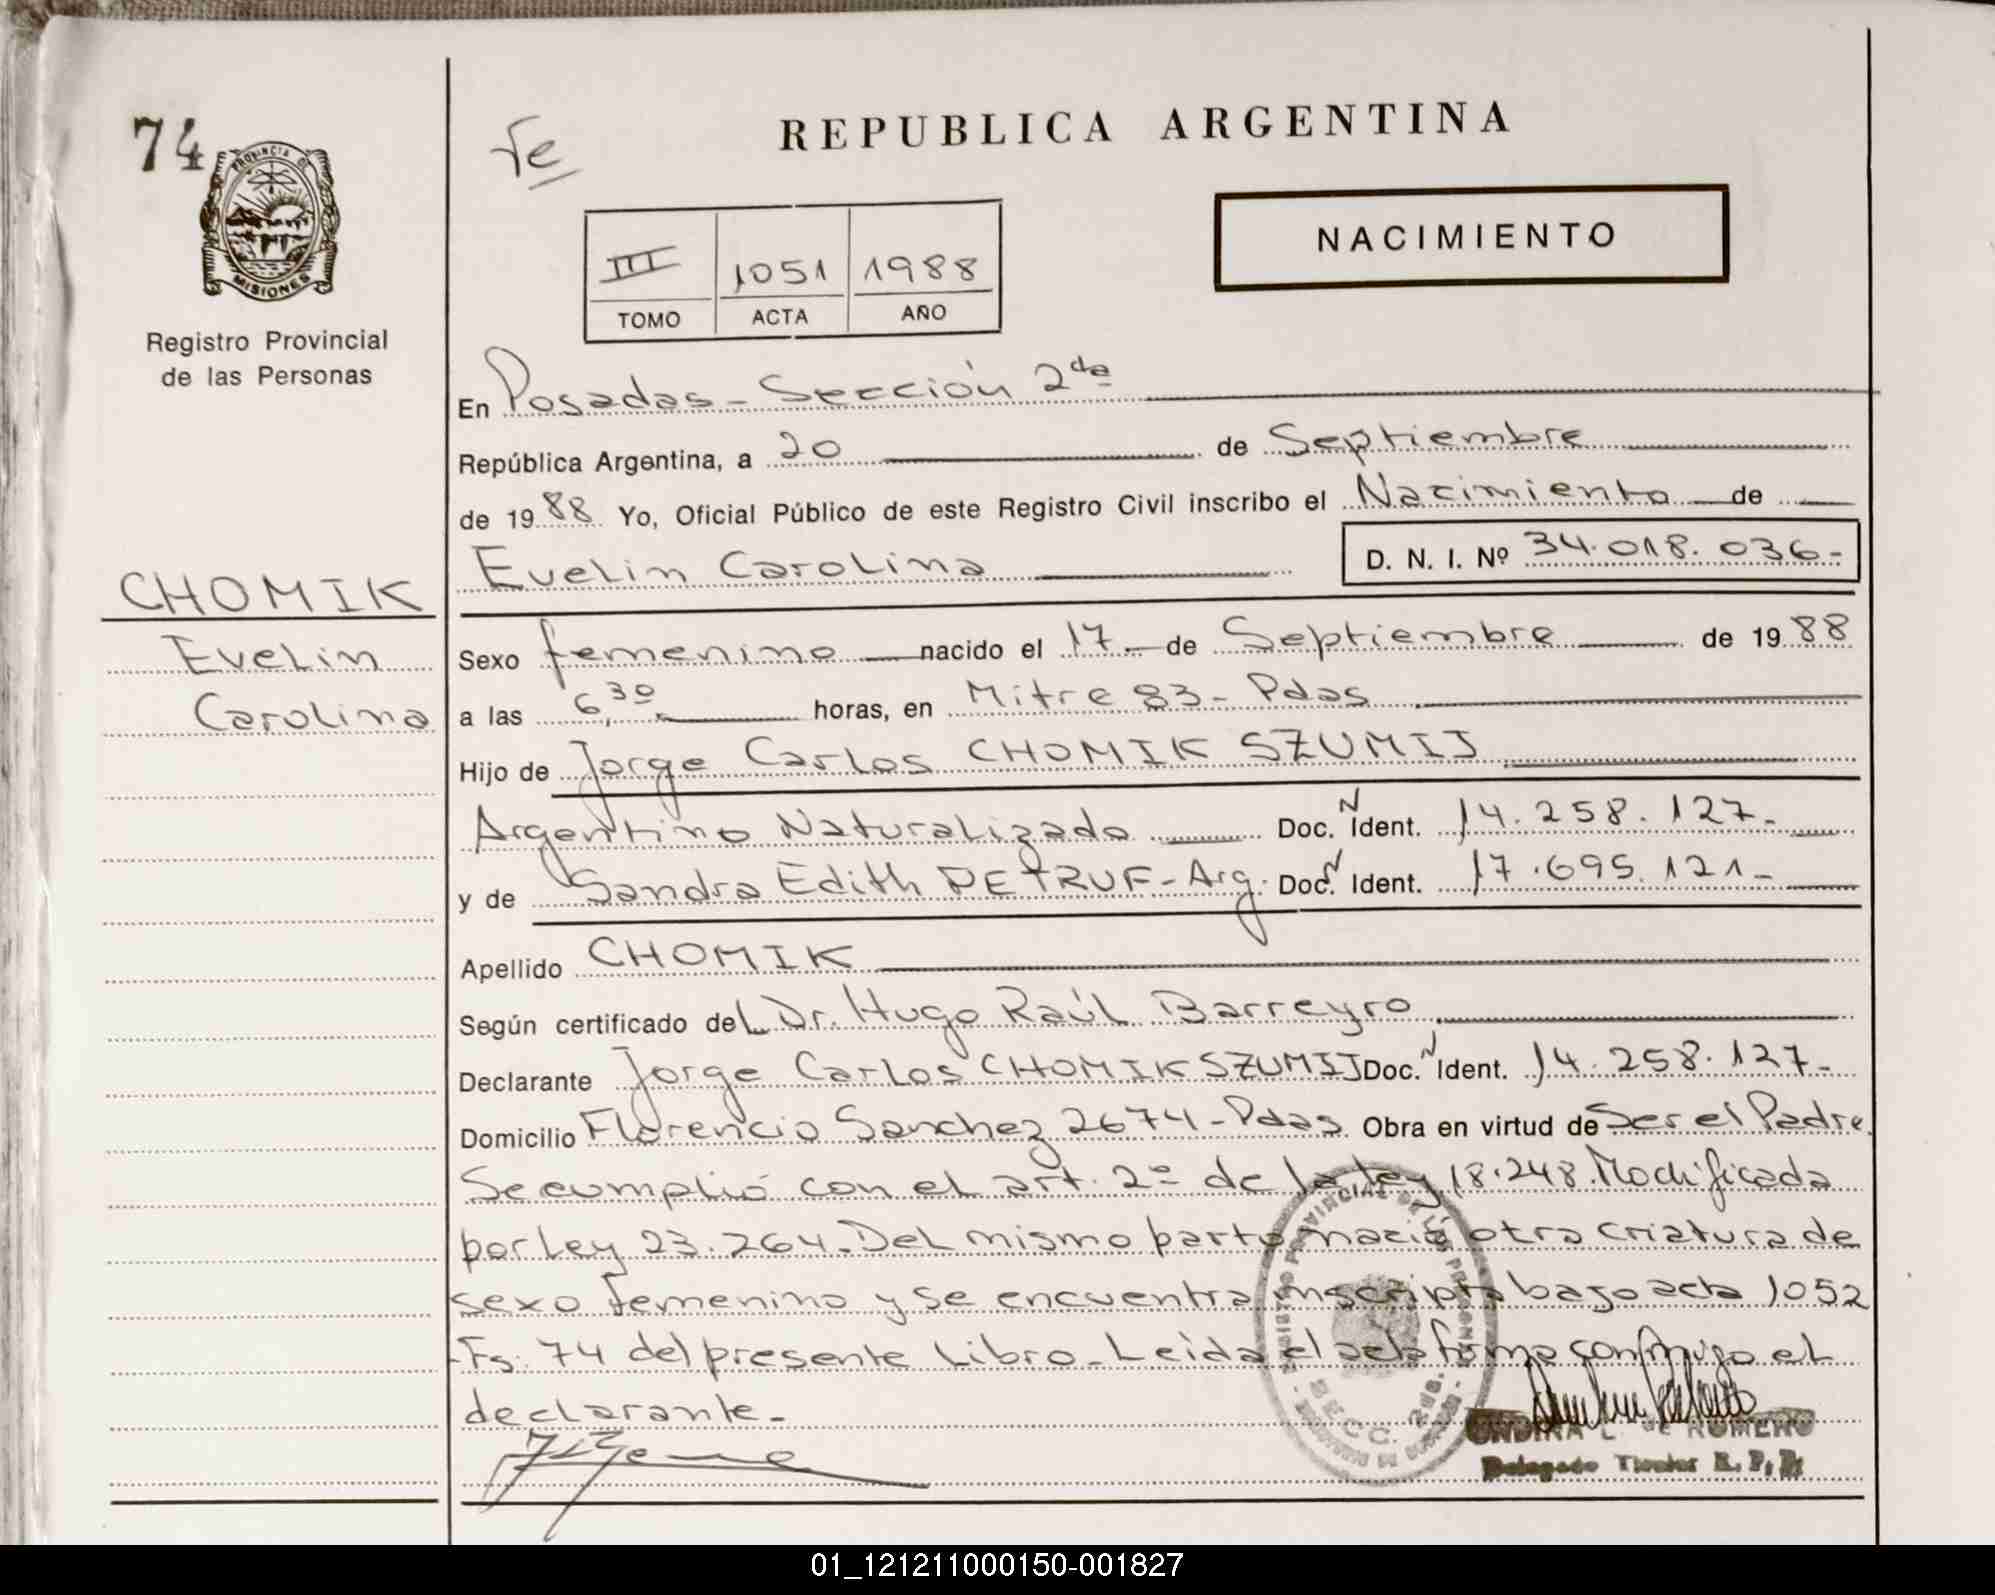 74
Fe
REPUBLICA ARGENTINA
PROVINCIA DE
MISIONES
NACIMIENTO
III 1051 1988
TOMO ACTA AÑO
Registro Provincial
de las Personas
En Posadas - Sección 2da
República Argentina, a 20 de Septiembre
de 1988 Yo, Oficial Público de este Registro Civil inscribo el Nacimiento de
Evelin Carolina D. N. I. Nº 34.018.036-
CHOMIK
Evelin
Carolina
Sexo femenino nacido el 17 de Septiembre de 1988
a las 6,30 horas, en Mitre 83 - Pdas
Hijo de Jorge Carlos CHOMIK SZUMIJ
Argentino Naturalizado Doc. N Ident. 14.258.127-
y de Sandra Edith PETRUF - Arg. Doc. N Ident. 17.695.121-
Apellido CHOMIK
Según certificado del Dr. Hugo Raúl Barreyro
Declarante Jorge Carlos CHOMIK SZUMIJ Doc. N Ident. 14.258.127-
Domicilio Florencio Sanchez 2674 - Pdas Obra en virtud de Ser el Padre
Se cumplió con el art. 2º de la ley 18.248. Modificada
por Ley 23.264. Del mismo parto nació otra criatura de
sexo femenino y se encuentra inscripta bajo acta 1052
Fs. 74 del presente Libro - Leida el acta firma conmigo el
declarante -
ONDINA L. de ROMERO
Delegado Titular R. P. P.
01_121211000150-001827